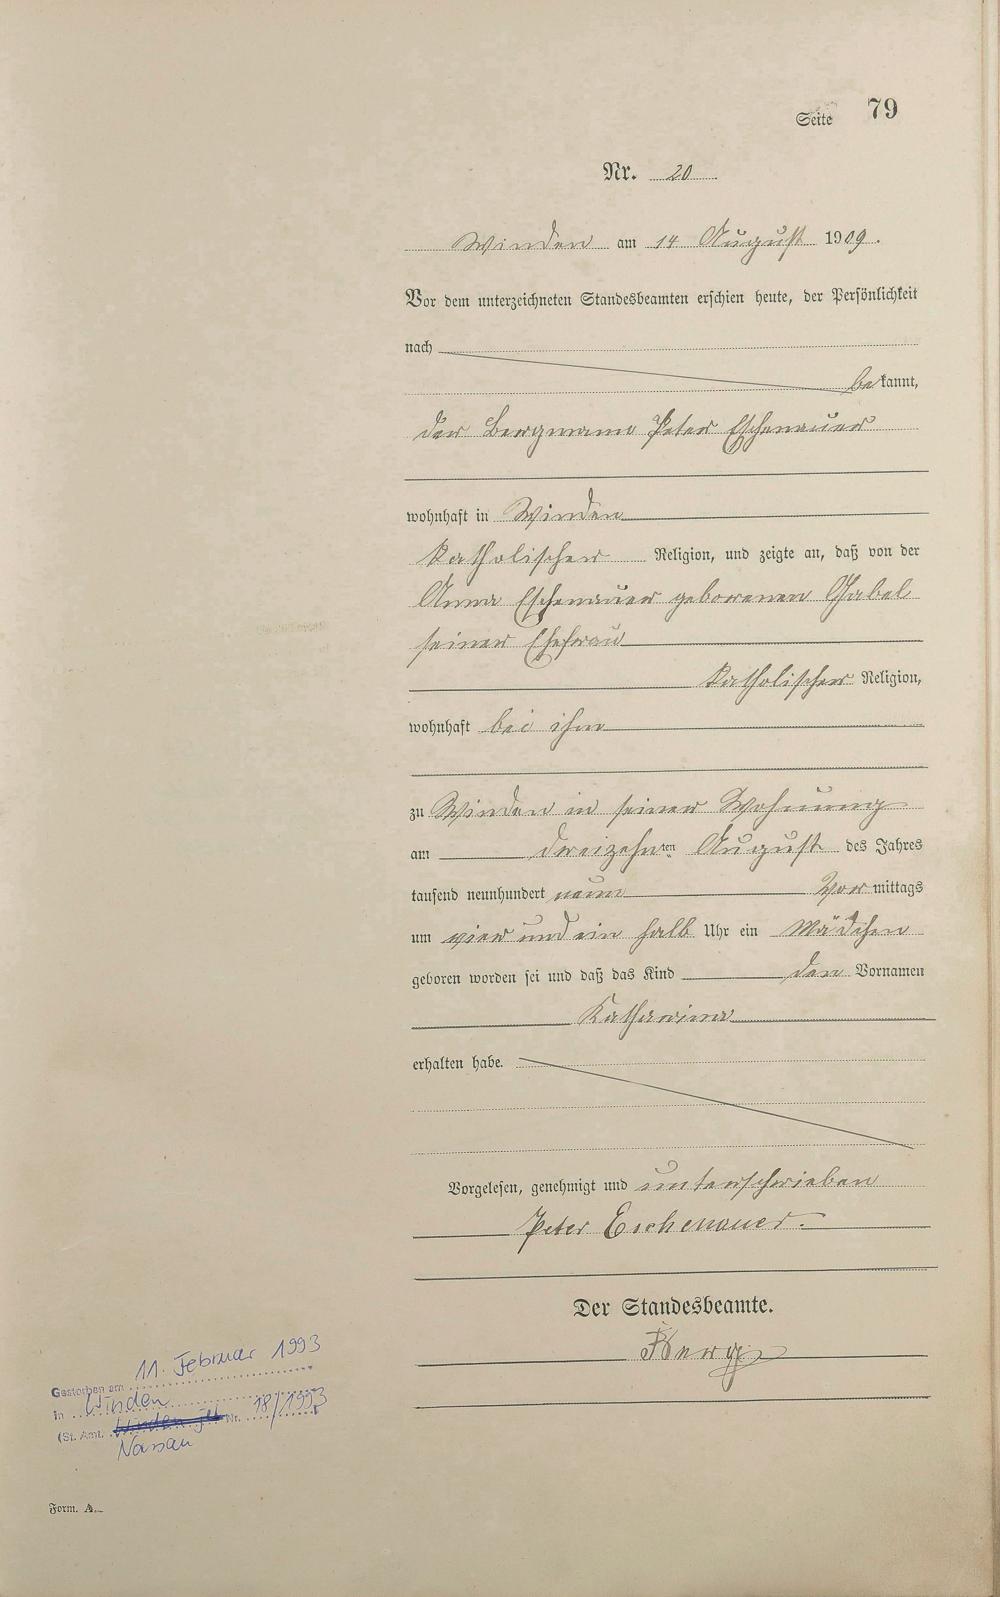 Seite 79
Nr. 20
Winden am 14 August 1909.
Vor dem unterzeichneten Standesbeamten erschien heute, der Persönlichkeit
nach
bekannt,
der Bergmann Peter Eschenauer
wohnhaft in Winden
katholischer Religion, und zeigte an, daß von der
Anna Eschenauer geborenen Gabel
seiner Ehefrau
katholischer Religion,
wohnhaft bei ihm
zu Winden in seiner Wohnung
am dreizehnten August des Jahres
tausend neunhundert neun Vormittags
um vier und ein halb Uhr ein Mädchen
geboren worden sei und daß das Kind den Vornamen
Katharina
erhalten habe.
Vorgelesen, genehmigt und unterschrieben
Peter Eschenauer.
Der Standesbeamte.
Berg
Gestorben am 11. Februar 1993
in Winden
(St. Amt. Nr. 18/1993
Nassau
Form. A.